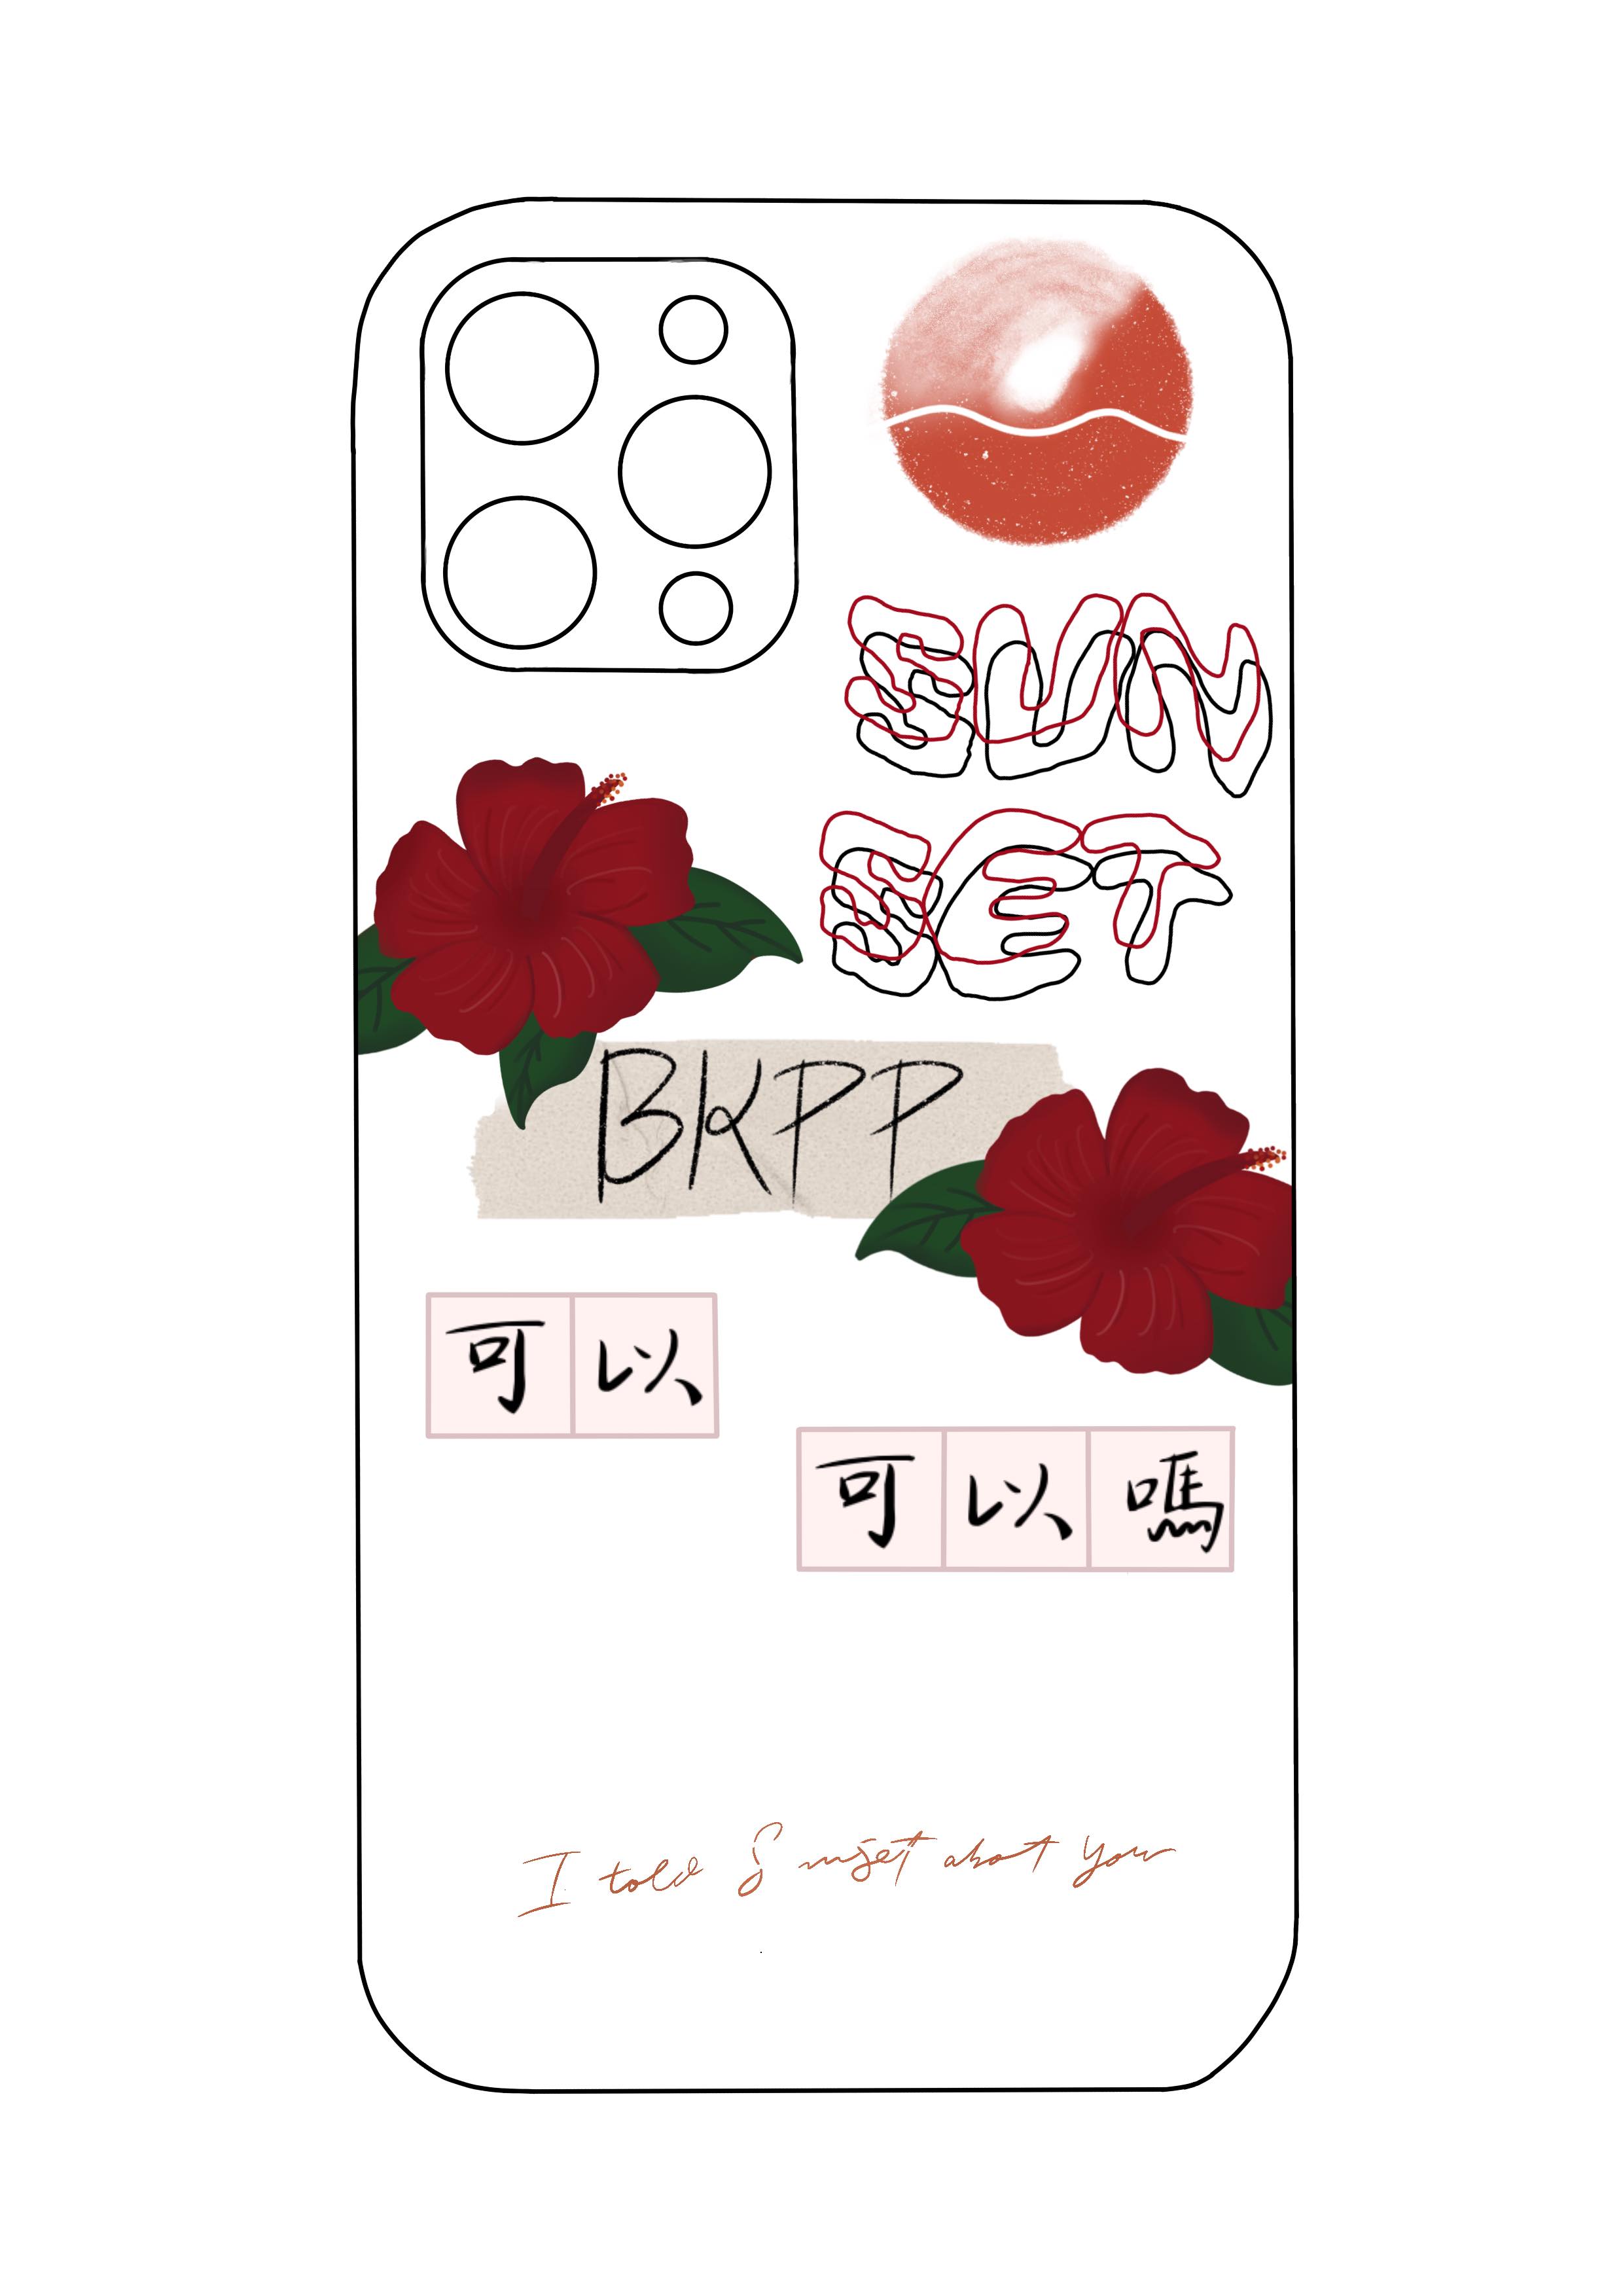 SUN
SET
BKPP
可以
可以嗎
I told Sunset about you